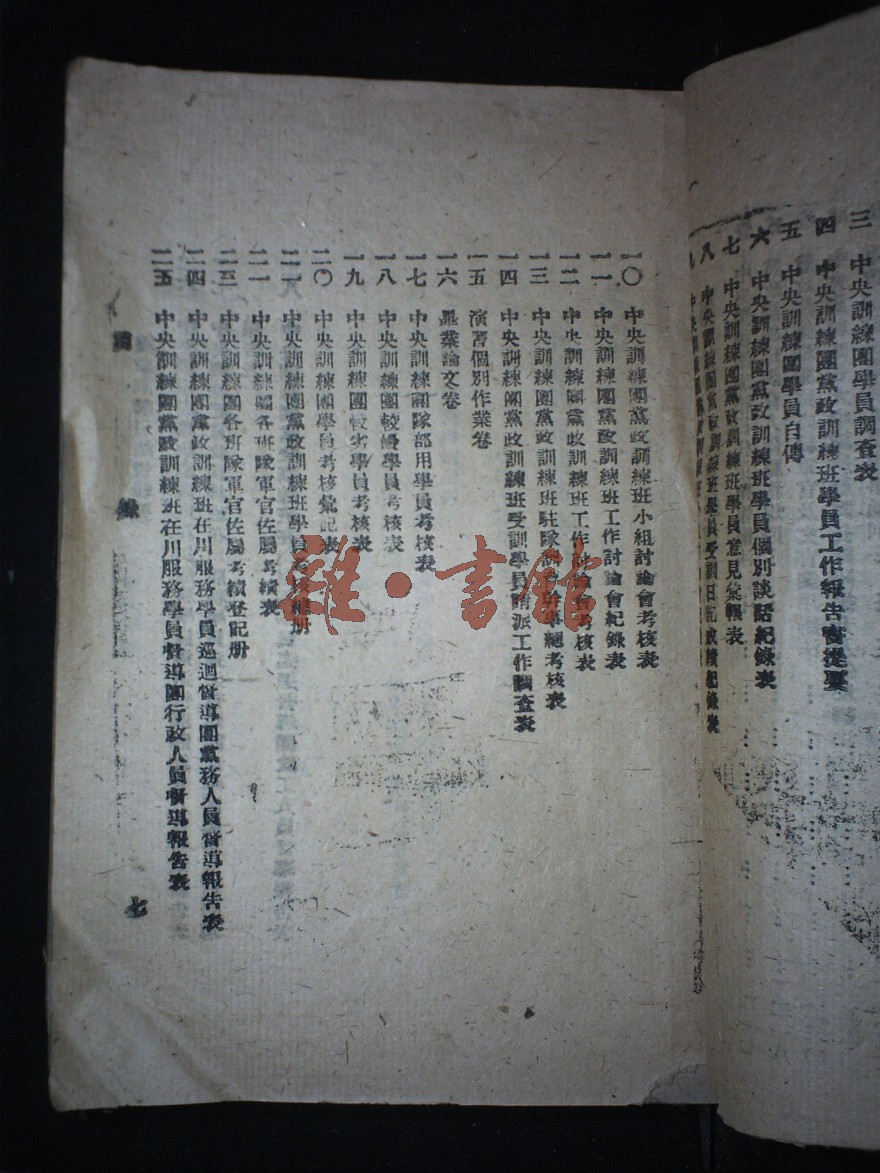 三 中央訓練團學員調查表
四 中央訓練團黨政訓練班學員工作報告審查提要
五 中央訓練團學員自傳
六 中央訓練團黨政訓練班學員個別談話紀錄表
七 中央訓練團黨政訓練班學員意見彙報表
八 中央訓練團黨政訓練班學員受訓日記成績紀錄表
九 中央訓練團黨政訓練班
一〇 中央訓練團黨政訓練班小組討論會考核表
一一 中央訓練團黨政訓練班工作討論會紀錄表
一二 中央訓練團黨政訓練班工作討論會考核表
一三 中央訓練團黨政訓練班駐隊訓育幹事總考核表
一四 中央訓練團黨政訓練班受訓學員請派工作調查表
一五 演習個別作業卷
一六 畢業論文卷
一七 中央訓練團隊部用學員考核表
一八 中央訓練團較優學員考核表
一九 中央訓練團較劣學員考核表
二〇 中央訓練團學員考核彙記表
二一 中央訓練團黨政訓練班學員考核總册
二二 中央訓練團各班隊軍官佐屬考績表
二三 中央訓練團各班隊軍官佐屬考績登記册
二四 中央訓練團黨政訓練班在川服務學員巡迴督導團黨務人員督導報告表
二五 中央訓練團黨政訓練班在川服務學員督導團行政人員督導報告表
目 錄 七
雜·書館